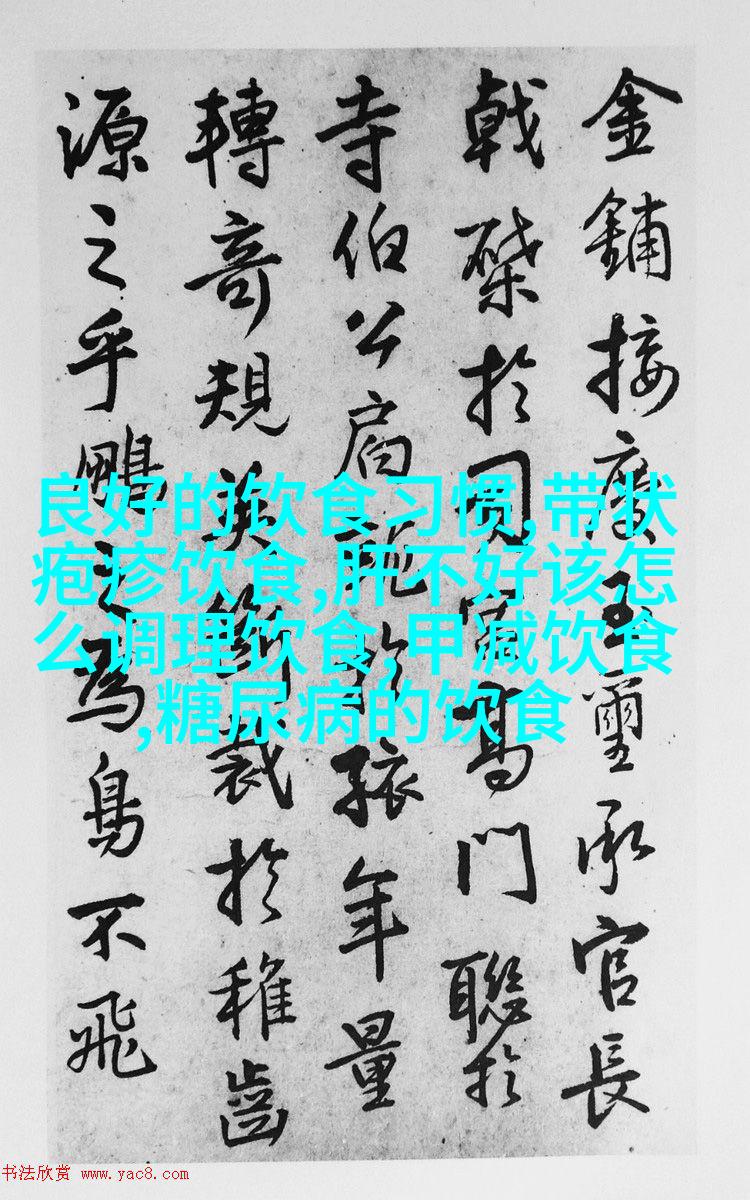 金鋪接玉璽承官長
戟於同高門聯於
寺伯公於孩年量
轉奇規英斷裁於稚齒
源之乎鵬之為鳥不飛
良好的饮食习惯,带状
疱疹饮食,肝不好该怎
么调理饮食,甲减饮食
,糖尿病的饮食
书法欣赏 www.yac8.com